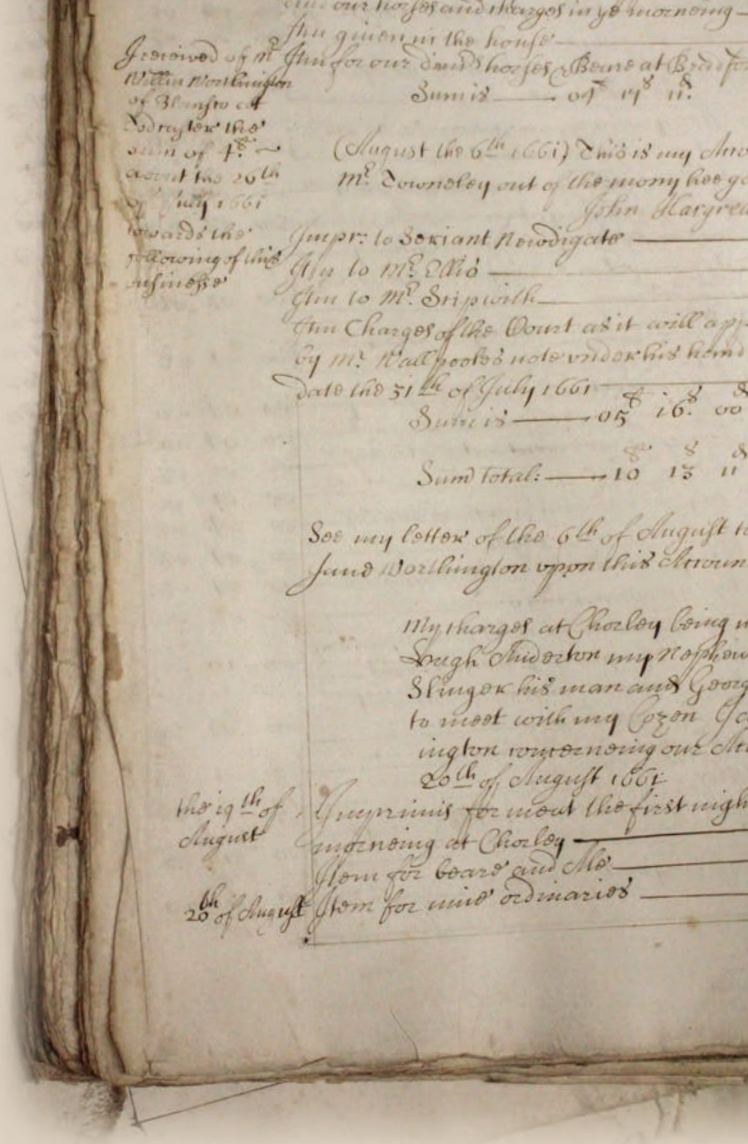 and our horses and charges in ye morneing
Itm given in the house
Itm for our
Sum is 04 11
I received of mr
Willm Worthington
of
the
sum of 4s
about the 20th
of July 1661
towards the
following of this
businesse
(August the 6th 1661) This is my
mr. Towneley out of the mony hee
John
Impr: to Seriant Newdigate
Itm to mr. Ellis
Itm to mr. Skipwith
Itm Charges of the Court as it will
by mr. Wallpooles note under his hand
date the 31th of July 1661
Sum is 05 16s 00
Sum total: 10 13 11
See my letter of the 6th of August to
Jane Worthington uppon this
My charges at Chorley being
Hugh Anderton my Nephew
Slinger his man and
to meet with my Cozen
ington concerneing our
20th of August 1661
the 19th of
August
Imprimis for meat the first nigh
morneing at Chorley
Item for beare and Ale
20th of August Item for nine ordinaries